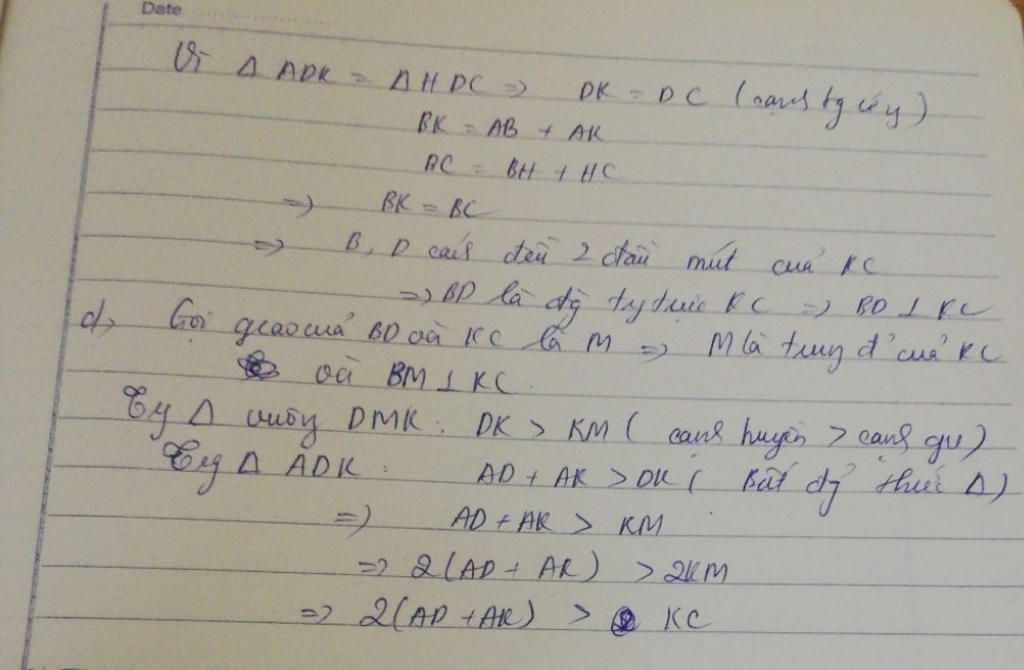 Date
Vì Δ ADK = Δ HDC => DK = DC (cạnh tg ứng)
BK = AB + AK
BC = BH + HC
=> BK = BC
=> B, D cách đều 2 đầu mút của KC
=> BD là đg tg trực KC => BD ⊥ KC
d, Gọi giao của BD và KC là M => M là trung đ' của KC
và BM ⊥ KC.
Tg Δ vuông DMK: DK > KM ( cạnh huyền > cạnh gv)
Tg Δ ADK: AD + AK > DK ( Bất đg thức Δ)
=> AD + AK > KM
=> 2(AD + AK) > 2KM
=> 2(AD + AK) > KC